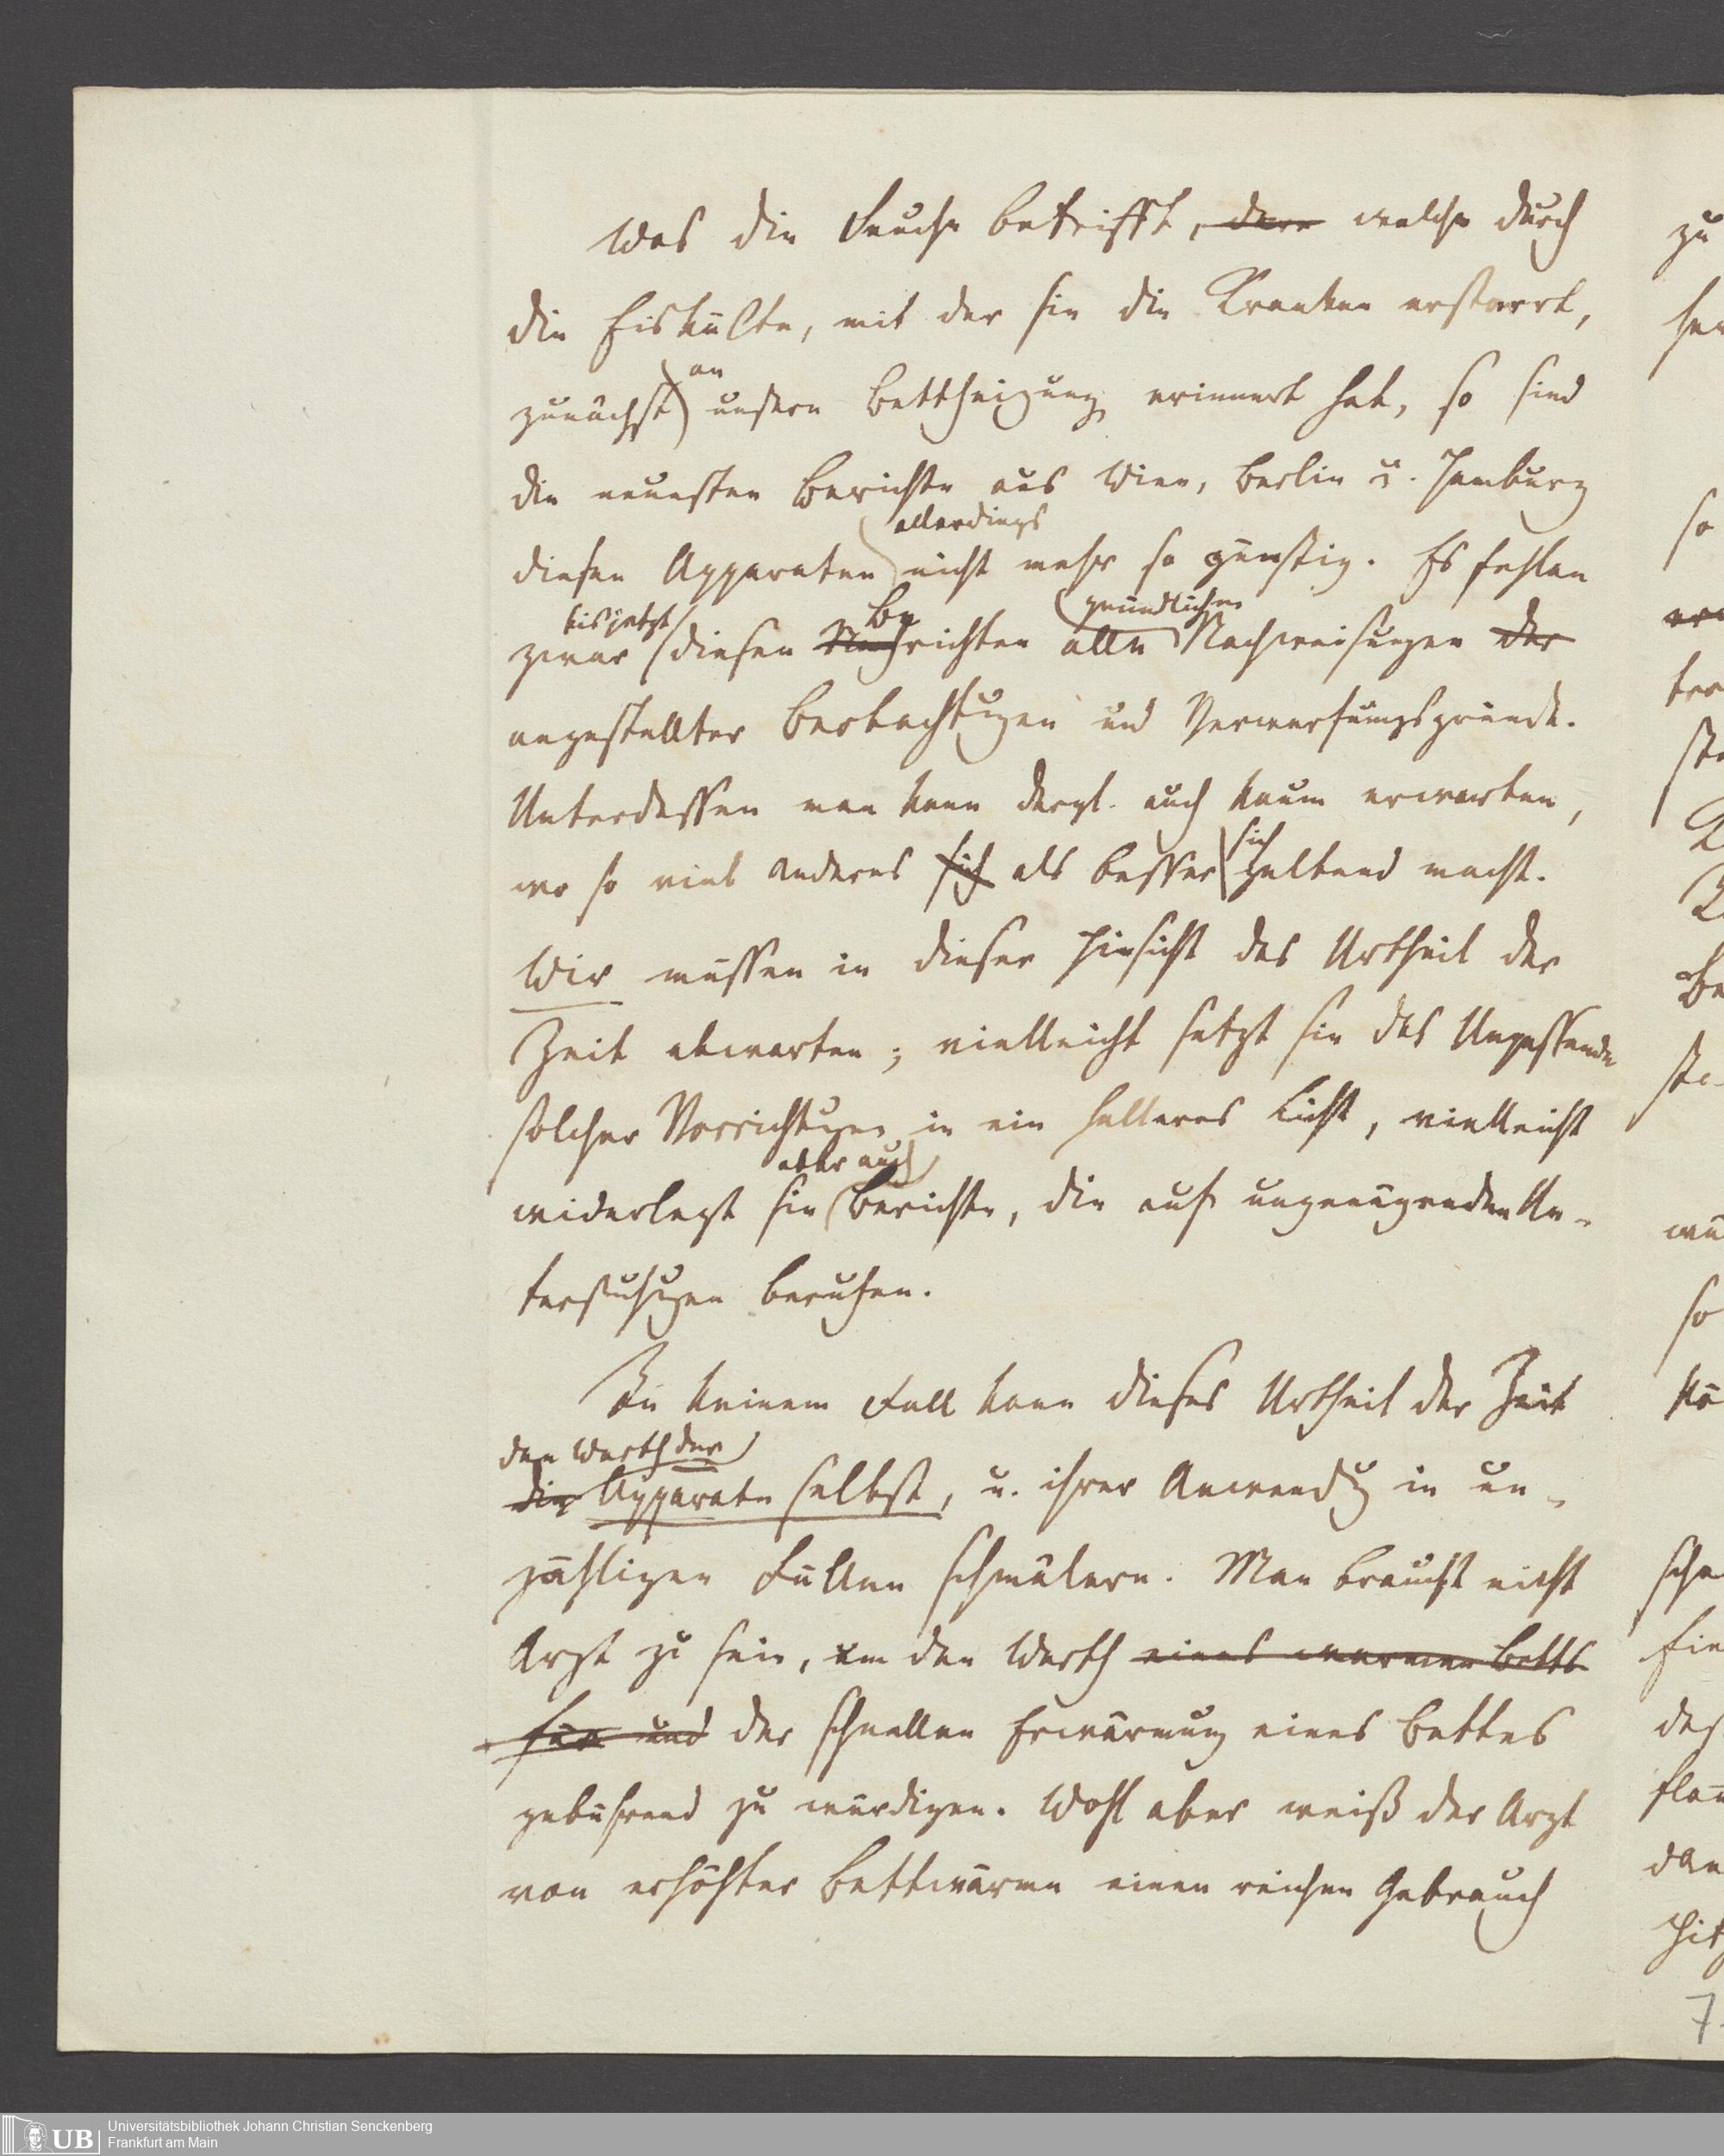 Was die Seuche betrifft, deren welche durch
die Eiskälte, mit der sie die Kranken erstarrt,
an
zunächst unsern Bettheizung erinnert hat, so sind
die neuesten Berichte aus Wien, Berlin u. Hamburg
allerdings
diesen Apparaten nicht mehr so günstig. Es fehlen
bis jetzt Be gründlichen
zwar diesen Nachrichten alle Nachweisungen der
angestellter Beobachtungen und Verwerfungsgründe.
Unterdessen man kann dergl. auch kaum erwarten,
sich
wo so viel anderes sich als besser geltend macht.
Wir müssen in dieser Hinsicht das Urtheil der
Zeit abwarten; vielleicht setzt sie das Unpassende
solcher Vorrichtungen in ein helleres Licht, vielleicht
aber auch
widerlegt sie Berichte, die auf ungenügenden Un-
tersuchungen beruhen.
In keinem Fall kann dieses Urtheil der Zeit
den Werth der
die Apparate selbst, u. ihrer Anwendung in un-
zähligen Fällen schmälern. Man braucht nicht
Arzt zu sein, um den Werth eines warmen Betts
für und der schnellen Erwärmung eines Bettes
gebührend zu würdigen. Wohl aber weiß der Arzt
von erhöhter Bettwärme einen reichen Gebrauch
zu
so
7
UB Universitätsbibliothek Johann Christian Senckenberg
Frankfurt am Main